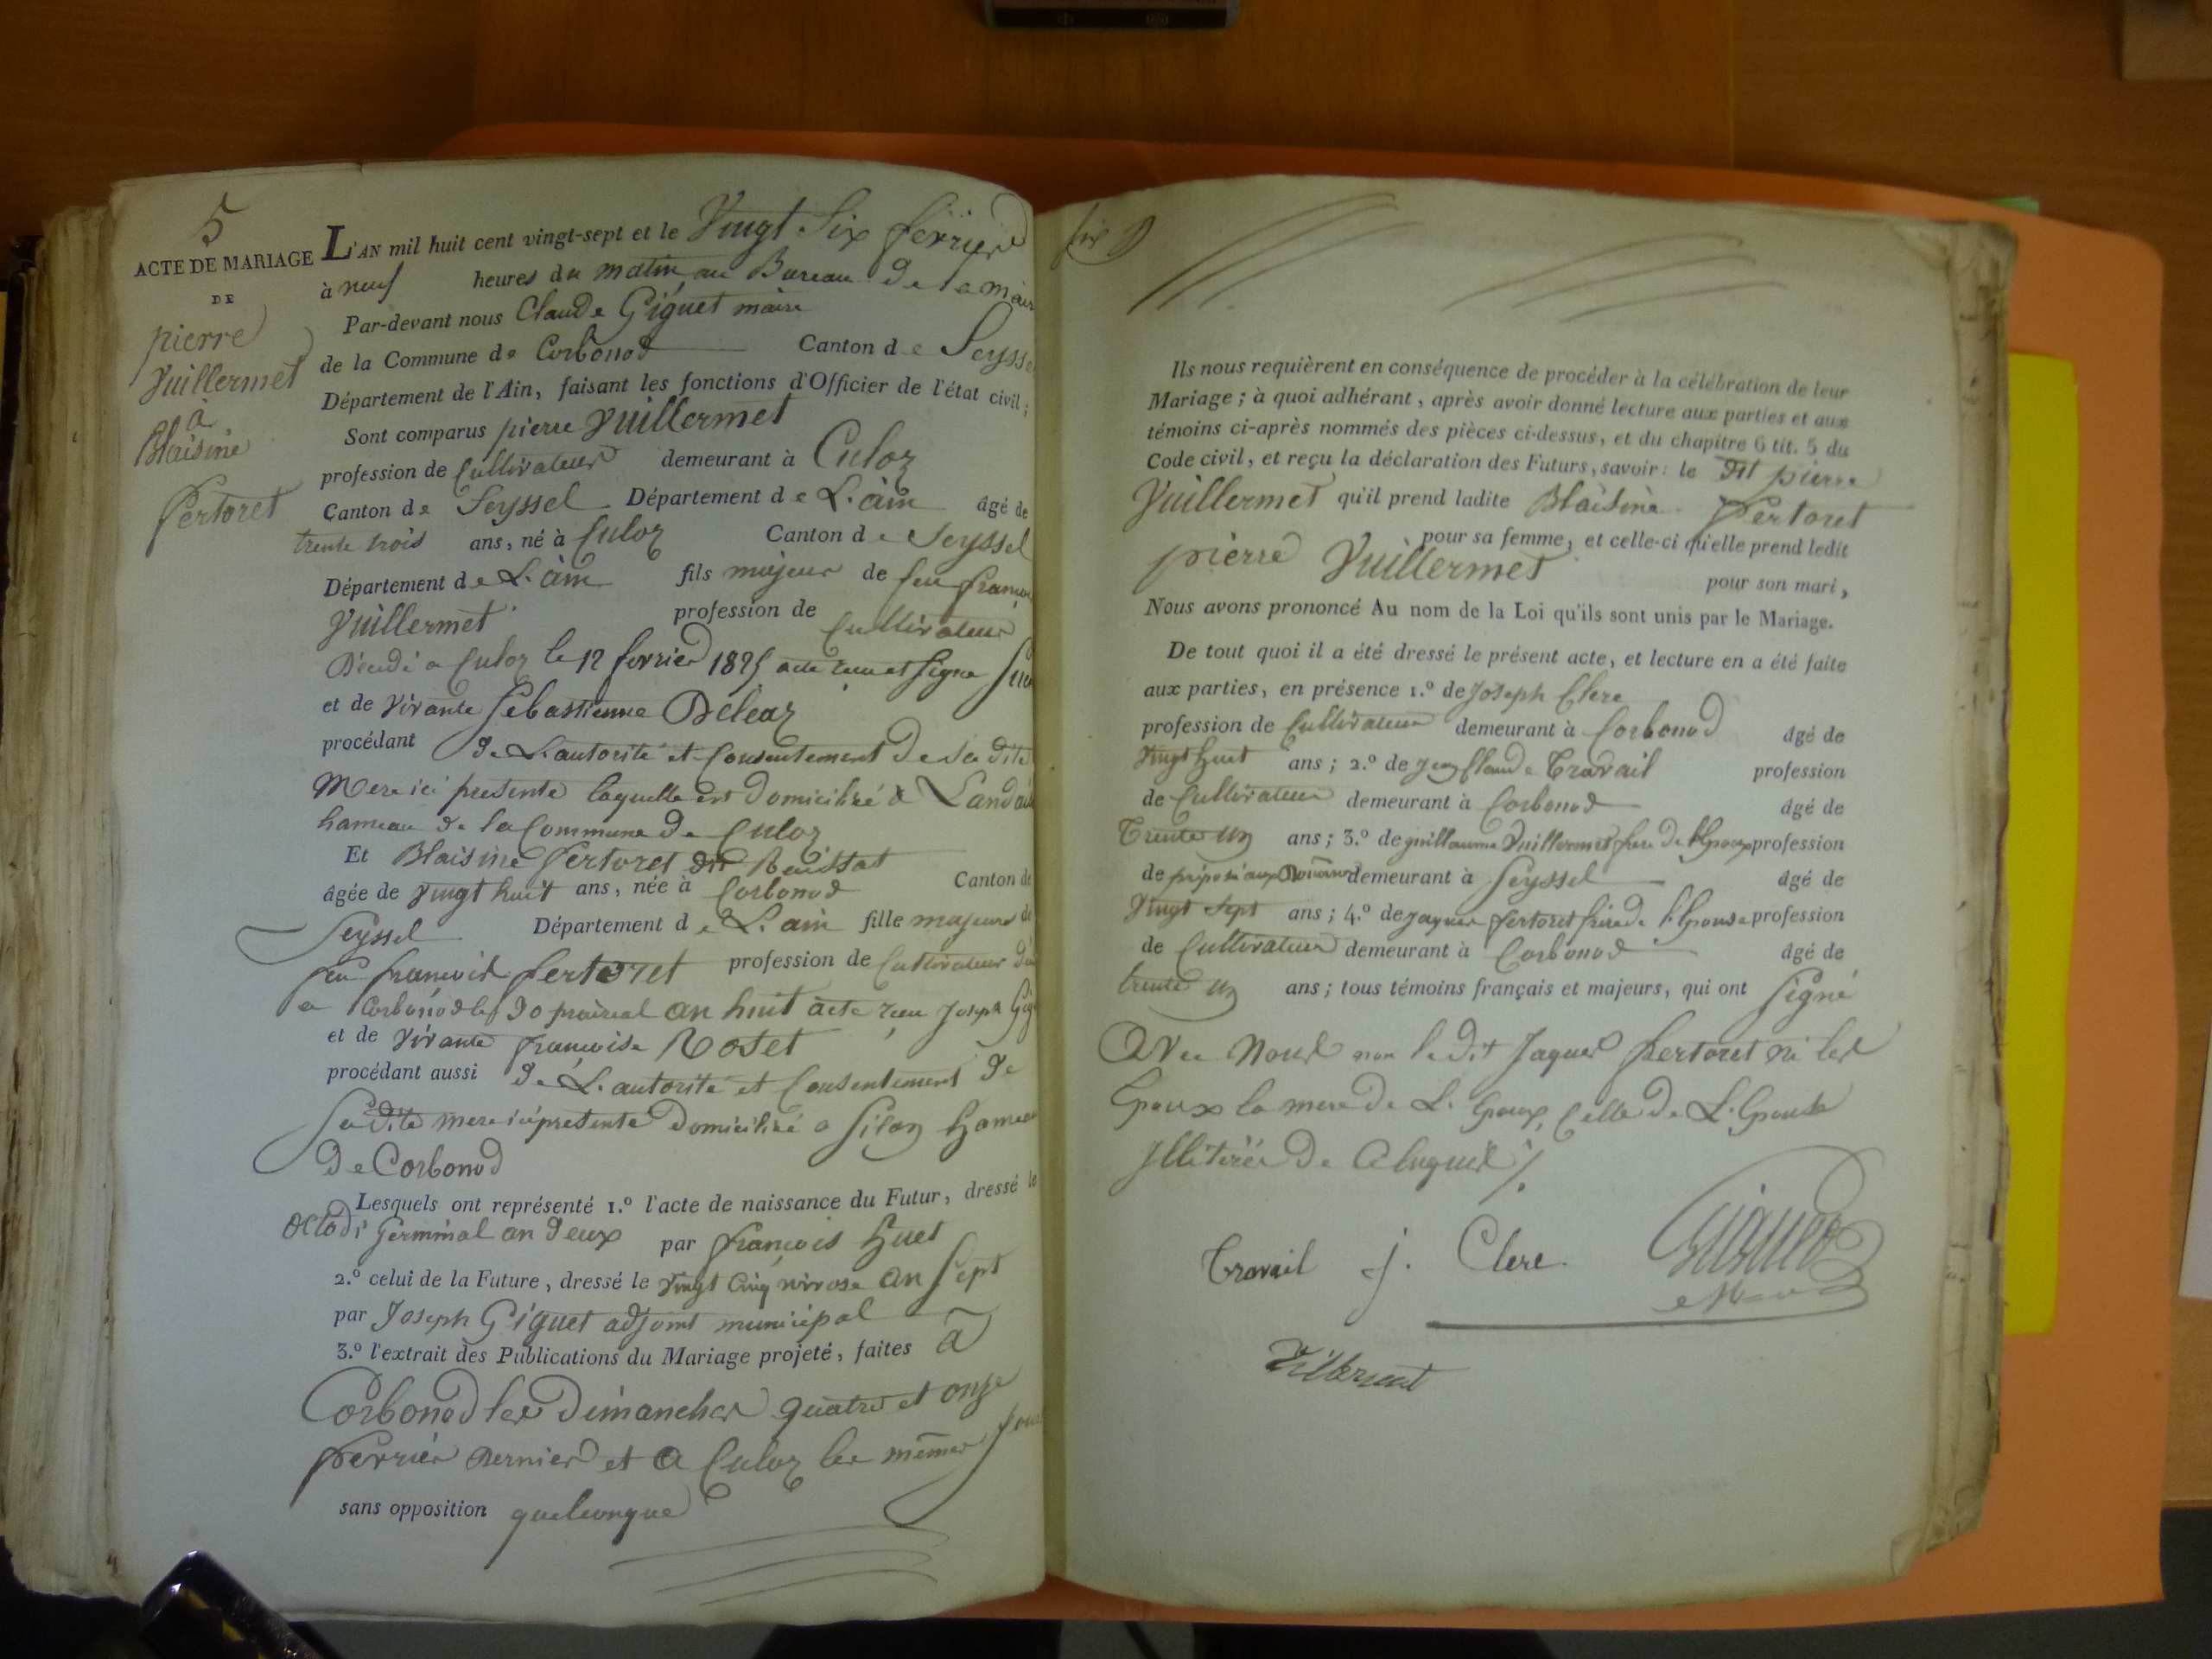 5
ACTE DE MARIAGE
DE
pierre
Vuillermet
à
Blaisine
Pertoret
L'AN mil huit cent vingt-sept et le Vingt Six ferrier
à neuf heures du matin au Bureau de la mair
Par-devant nous Claude Giguet maire
de la Commune de Corbonod Canton de Seyssel
Département de l'Ain, faisant les fonctions d'Officier de l'état civil;
Sont comparus pierre Vuillermet
profession de Cultivateur demeurant à Culoz
Canton de Seyssel Département de L'ain âgé de
trente trois ans, né à Culoz Canton de Seyssel
Département de L'ain fils majeur de feu françois
Vuillermet profession de Cultivateur
Décedé a Culoz le 12 ferrier 1825 acte recu et Signe
et de Vivante Sebastienne Deleaz
procédant de L'autorité et Consentement De sa dite
Mere ici presente laquelle est Domiciliée a
hameau de la Commune de Culoz
Et Blaisine Pertoret dit
âgée de Vingt huit ans, née à Corbonod Canton de
Seyssel Département de L'ain fille majeure de
feu françois Pertoret profession de Cultivateur
a Corbonod le 30 praireal an huit acte recu Joseph
et de Vivante françoise Roset
procédant aussi de L'autorité et Consentement de
Sadite mere ici presente Domiciliée a Silan Hameau
De Corbonod
Lesquels ont représenté 1.º l'acte de naissance du Futur, dressé le
Octodi Germinal an deux par françois Huet
2.º celui de la Future, dressé le Vingt Cinq nivose an Sept
par Joseph Giguet adjoint municipal
3.º l'extrait des Publications du Mariage projeté, faites à
Corbonod les Dimanches quatre et onze
ferrier dernier et a Culoz les mêmes Jours
sans opposition quelconque
Ils nous requièrent en conséquence de procéder à la célébration de leur
Mariage; à quoi adhérant, après avoir donné lecture aux parties et aux
témoins ci-après nommés des pièces ci-dessus, et du chapitre 6 tit. 5 du
Code civil, et reçu la déclaration des Futurs, savoir: le dit pierre
Vuillermet qu'il prend ladite Blaisine Pertoret
pour sa femme, et celle-ci qu'elle prend ledit
pierre Vuillermet pour son mari,
Nous avons prononcé Au nom de la Loi qu'ils sont unis par le Mariage.
De tout quoi il a été dressé le présent acte, et lecture en a été faite
aux parties, en présence 1.º de Joseph Clerc
profession de Cultivateur demeurant à Corbonod âgé de
Vingt huit ans; 2.º de Jean Claude Travail profession
de Cultivateur demeurant à Corbonod âgé de
Trente un ans; 3.º de guillaume Vuillermet frere de L'Epoux profession
de préposé aux Douanes demeurant à Seyssel âgé de
Vingt Sept ans; 4.º de Jaques Pertoret frère de L'Epouse profession
de Cultivateur demeurant à Corbonod âgé de
trente un ans; tous témoins français et majeurs, qui ont Signé
Avec Nous non le dit Jaques Pertoret ni les
Epoux la mere de L'Epoux, Celle de L'Epouse
Illiterés De Ce Enquis
Travail j. Clerc Giguet